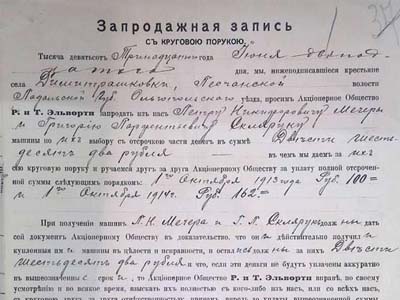 Запродажная запись
съ круговою порукою.
Тысяча девятьсот Тринадцатого года Июня девят-
надцатого дня, мы, нижеподписавшиеся крестьяне
села Димитрашковки, Песчанской волости
Подольской губ. Ольгопольского уезда, просим Акционерное Общество
Р. и Т. Эльворти запродать из нас Петру Никифоровичу Мегеры
и Григорию Парфентьевичу Склярук
машины по их выбору с отсрочкою части денег в сумме Двести шесть-
десят два рубля — в чем мы даем за их
сею круговую поруку и ручаемся друг за друга Акционерному Обществу за уплату полной отсроченной
суммы следующими порядками: 1го Октября 1913 года Руб. 100=
и 1го Октября 1914г. Руб. 162=
При получении машин П. Н. Мегера и Г. П. Склярук должны дать
сей документ Акционерному Обществу в доказательство, что он действительно получил и
купленныя им машины в целости и исправности, и остались должны за них Двести
шестьдесят два рубля и что, если эти деньги не будут уплачены аккуратно
в вышеозначенный срок и, то Акционерное Общество Р. и Т. Эльворти вправе, по своему
усмотрению и во всякое время, взыскать их полностью с кого-либо из нас, или со всех нас,